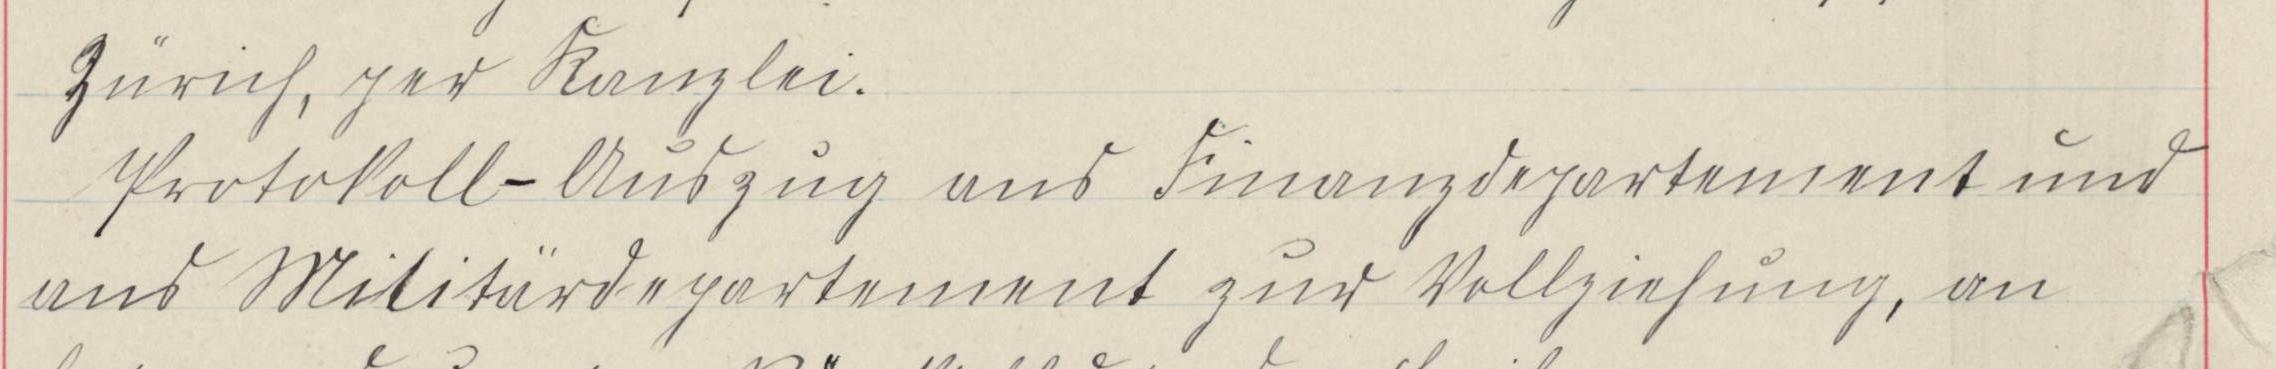 Zürich, per Kanzlei.
Protokoll-Auszug ans Finanzdepartement und
ans Militärdepartement zur Vollziehung, an